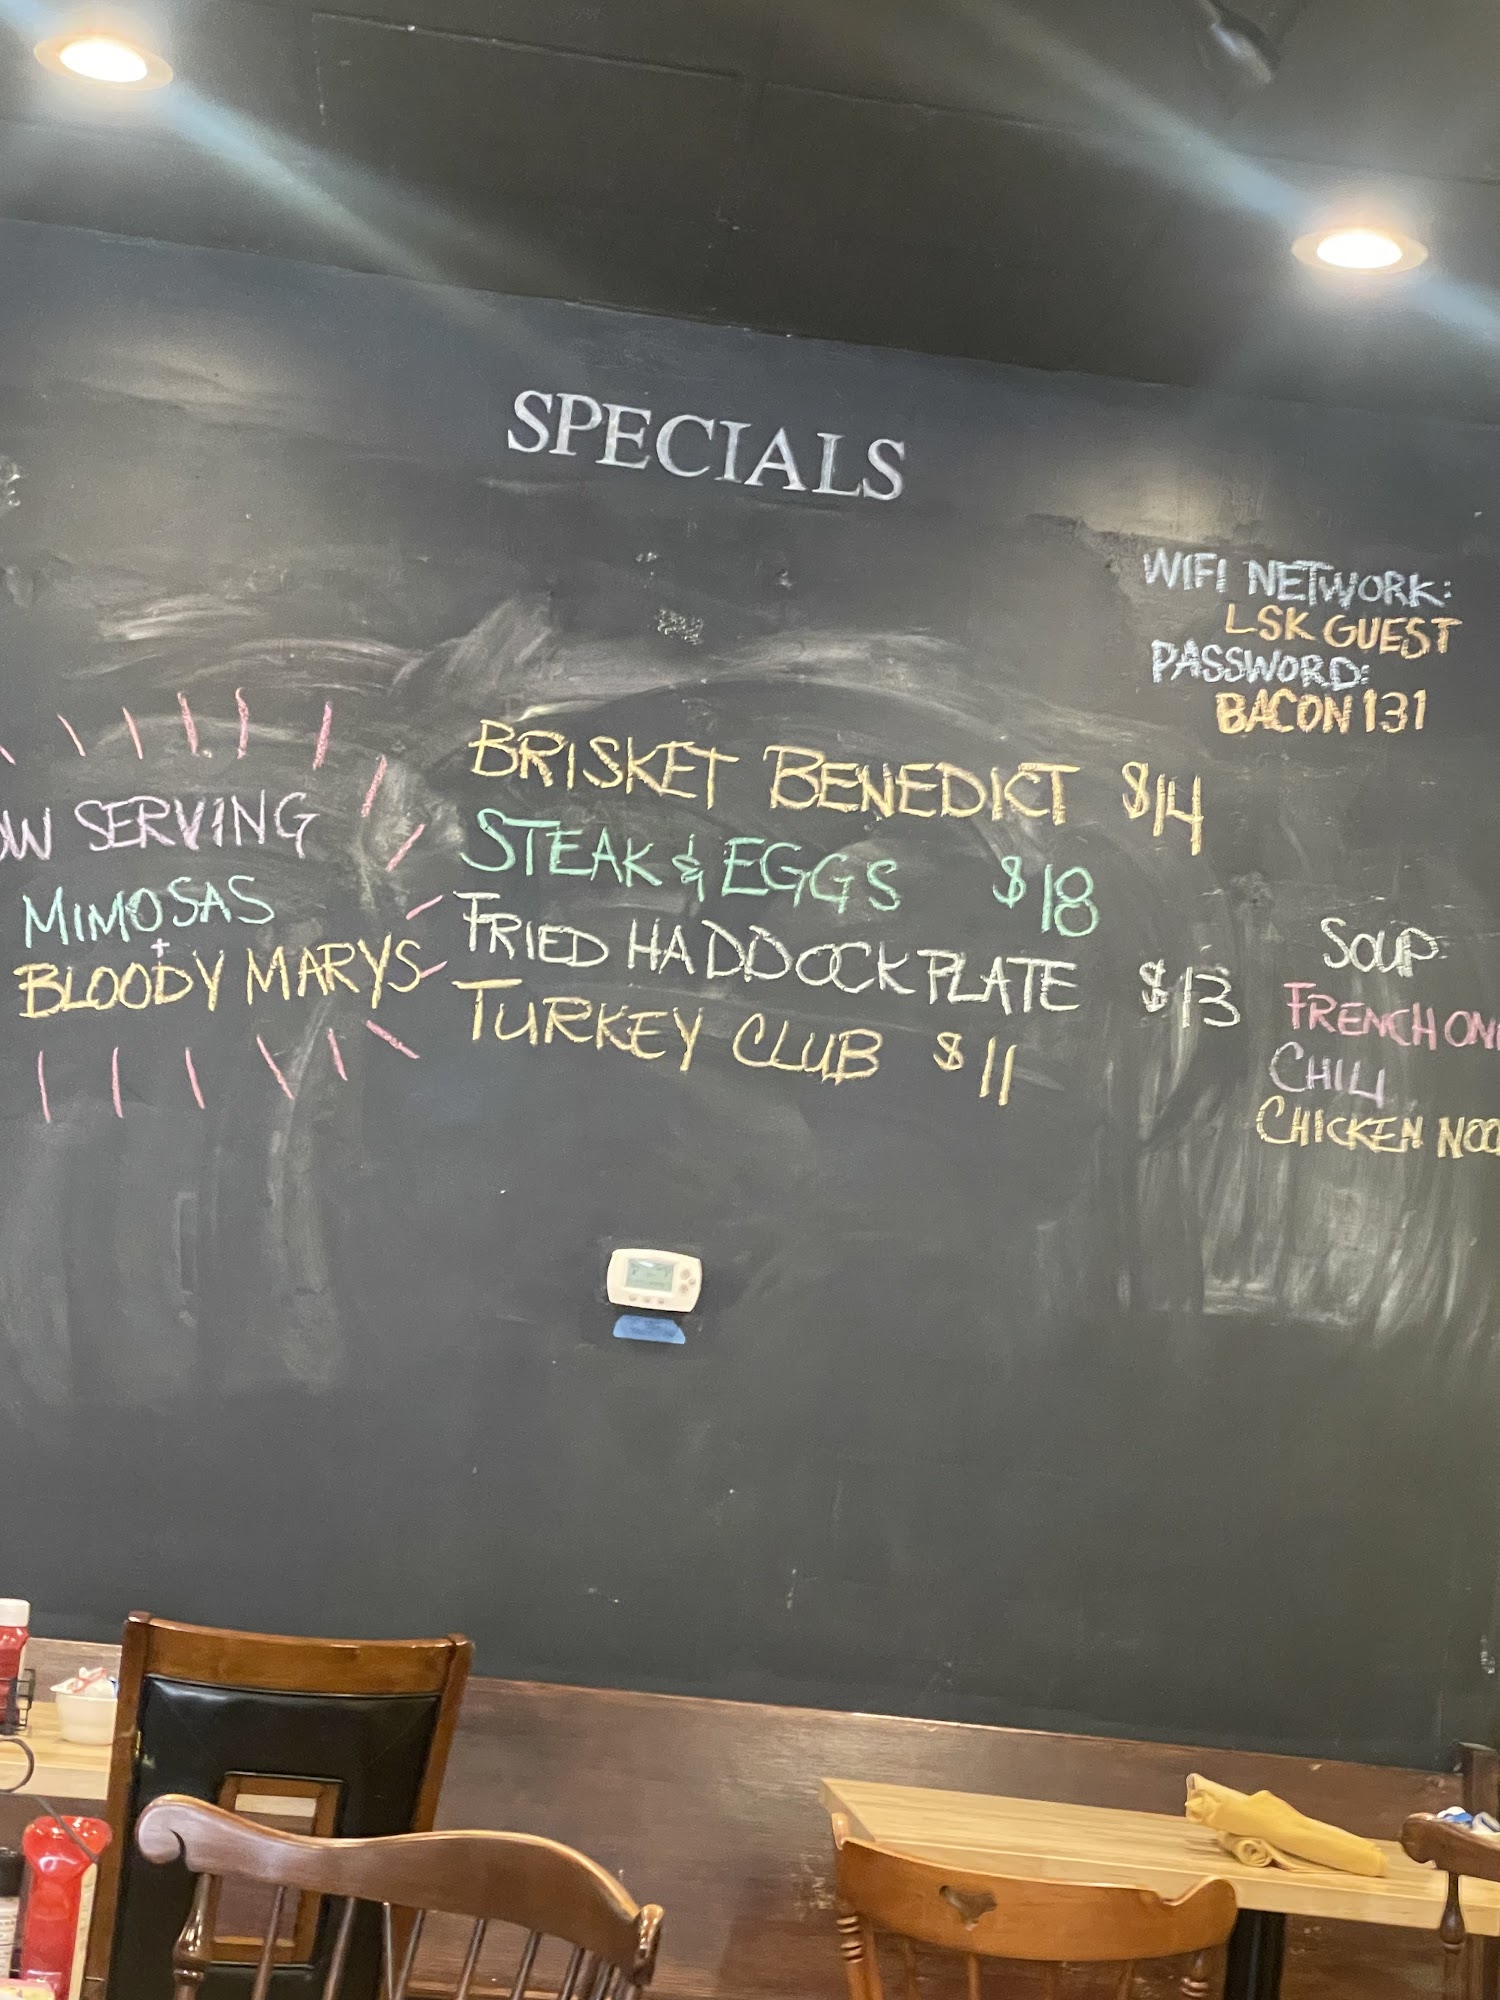 SPECIALS
WIFI NETWORK:
LSK GUEST
PASSWORD:
BACON 131
OW SERVING
MIMOSAS
+
BLOODY MARYS
BRISKET BENEDICT $14
STEAK & EGGS $18
FRIED HADDOCK PLATE $13
TURKEY CLUB $11
SOUP
FRENCH ONI
CHILI
CHICKEN NOO